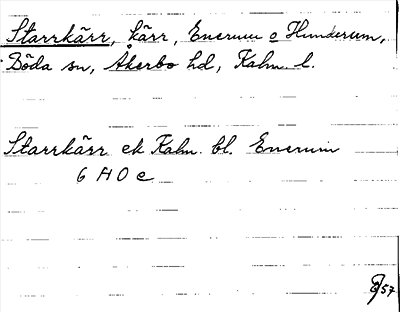 Starrkärr, kärr, Enerum o Hunderum,
Böda sn, Åkerbo hd, Kalm. l.
Starrkärr ek Kalm. bl. Enerum
6 H 0 c
57